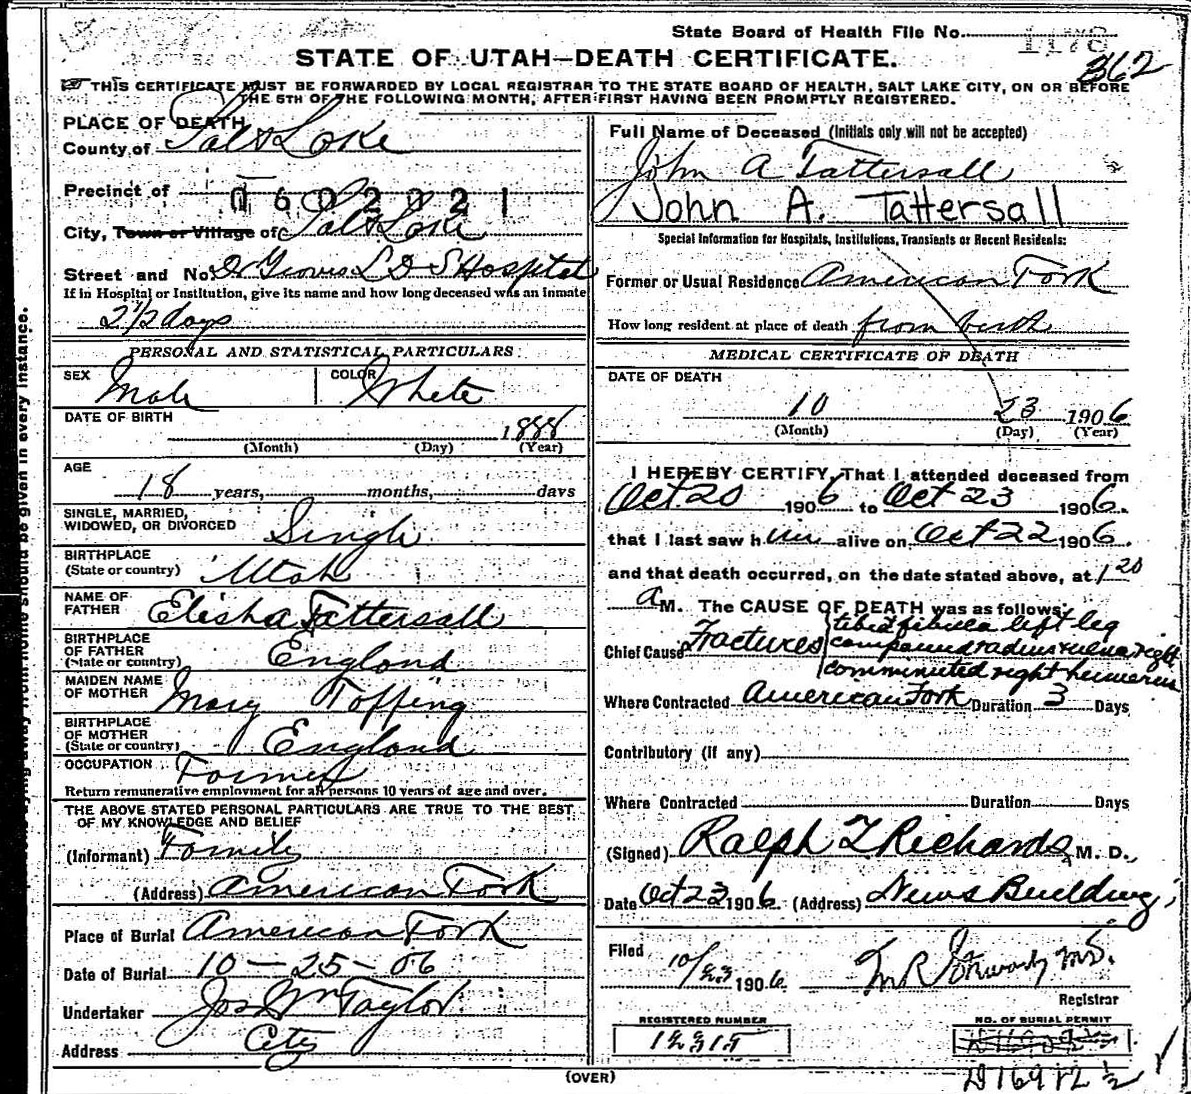 State Board of Health File No. 1178
STATE OF UTAH—DEATH CERTIFICATE.
362
THIS CERTIFICATE MUST BE FORWARDED BY LOCAL REGISTRAR TO THE STATE BOARD OF HEALTH, SALT LAKE CITY, ON OR BEFORE
THE 5TH OF THE FOLLOWING MONTH, AFTER FIRST HAVING BEEN PROMPTLY REGISTERED.
PLACE OF DEATH
County of Salt Lake
Precinct of
0602021
City, Town or Village of Salt Lake
Street and No. Dr Groves L D S Hospital
If in Hospital or Institution, give its name and how long deceased was an inmate
2 1/2 days
PERSONAL AND STATISTICAL PARTICULARS
SEX Male COLOR White
DATE OF BIRTH
1888
(Month) (Day) (Year)
AGE
18 years, months, days
SINGLE, MARRIED,
WIDOWED, OR DIVORCED Single
BIRTHPLACE
(State or country) Utah
NAME OF
FATHER Elisha Tattersall
BIRTHPLACE
OF FATHER
(State or country) England
MAIDEN NAME
OF MOTHER Mary Topping
BIRTHPLACE
OF MOTHER
(State or country) England
OCCUPATION Farmer
Return remunerative employment for all persons 10 years of age and over.
THE ABOVE STATED PERSONAL PARTICULARS ARE TRUE TO THE BEST
OF MY KNOWLEDGE AND BELIEF
(Informant) Family
(Address) American Fork
Place of Burial American Fork
Date of Burial 10-25-06
Undertaker Jos Wm Taylor
Address City
(OVER)
Full Name of Deceased (Initials only will not be accepted)
John A Tattersall
John A. Tattersall
Special Information for Hospitals, Institutions, Transients or Recent Residents:
Former or Usual Residence American Fork
How long resident at place of death from birth
MEDICAL CERTIFICATE OF DEATH
DATE OF DEATH
10 23 1906
(Month) (Day) (Year)
I HEREBY CERTIFY, That I attended deceased from
Oct. 20 1906 to Oct 23 1906.
that I last saw him alive on Oct 22 1906.
and that death occurred, on the date stated above, at 1 20
a M. The CAUSE OF DEATH was as follows:
tibia & fibula left leg
Chief Cause Fractures compound radius & ulna right
comminuted right humerus
Where Contracted American Fork Duration 3 Days
Contributory (if any)
Where Contracted Duration Days
(Signed) Ralph T Richards M. D.,
Date Oct 23 1906 (Address) News Building
Filed
10/23 1906
Registrar
REGISTERED NUMBER
12315
NO. OF BURIAL PERMIT
D16912 1/2
should be given in every instance.